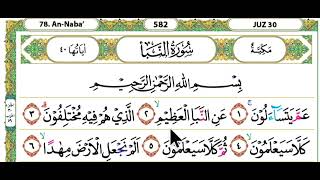 78. An-Naba' 582 JUZ 30
مَكِّيَّةٌ سُورَةُ النَّبَأِ اٰيَاتُهَا ٤٠
بِسْمِ اللّٰهِ الرَّحْمٰنِ الرَّحِيْمِ
عَمَّ يَتَسَاۤءَلُوْنَ ١ عَنِ النَّبَاِ الْعَظِيْمِ ٢ الَّذِيْ هُمْ فِيْهِ مُخْتَلِفُوْنَ ٣
كَلَّا سَيَعْلَمُوْنَ ٤ ثُمَّ كَلَّا سَيَعْلَمُوْنَ ٥ اَلَمْ نَجْعَلِ الْاَرْضَ مِهٰدًا ٦